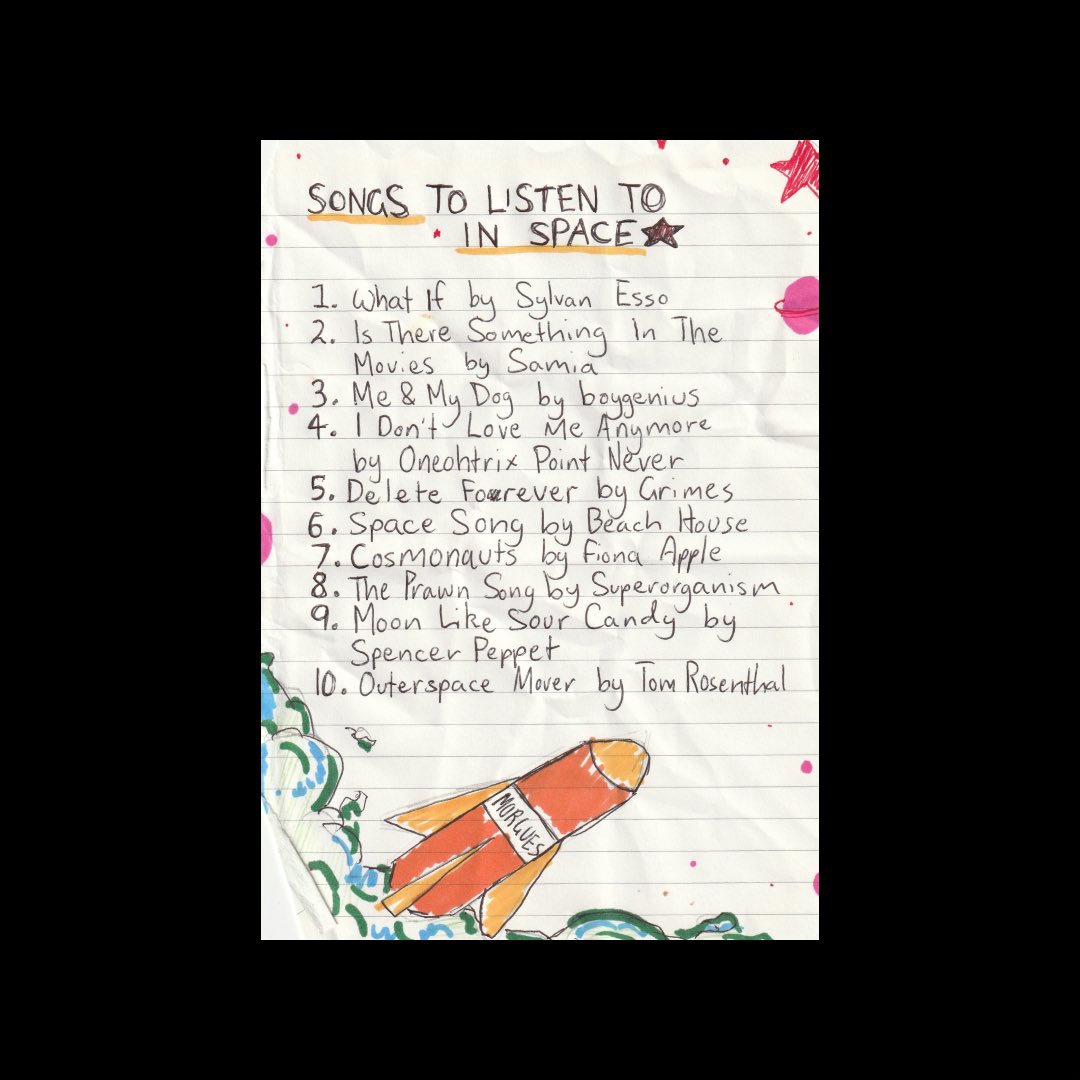 SONGS TO LISTEN TO
IN SPACE
1. What If by Sylvan Esso
2. Is There Something In The
Movies by Samia
3. Me & My Dog by boygenius
4. I Don't Love Me Anymore
by Oneohtrix Point Never
5. Delete Forever by Grimes
6. Space Song by Beach House
7. Cosmonauts by Fiona Apple
8. The Prawn Song by Superorganism
9. Moon Like Sour Candy by
Spencer Peppet
10. Outerspace Mover by Tom Rosenthal
MORGUES